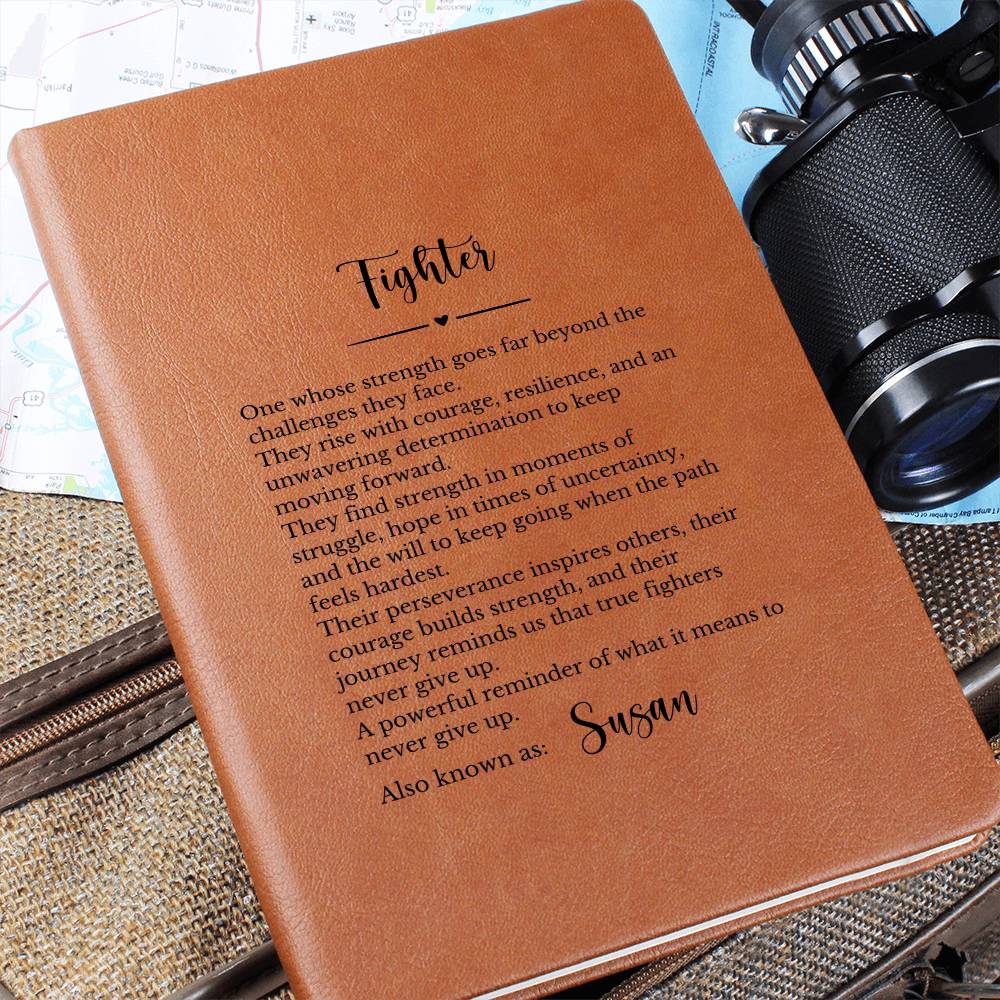 Fighter
One whose strength goes far beyond the
challenges they face.
They rise with courage, resilience, and an
unwavering determination to keep
moving forward.
They find strength in moments of
struggle, hope in times of uncertainty,
and the will to keep going when the path
feels hardest.
Their perseverance inspires others, their
courage builds strength, and their
journey reminds us that true fighters
never give up.
A powerful reminder of what it means to
never give up.
Also known as: Susan
Airport
Ranch
Dixie Sky
Woodlands G C
Buffalo Creek
Golf Course
Parrish
41
41
INTRACOASTAL
Park
Tampa Bay Chamber of Com